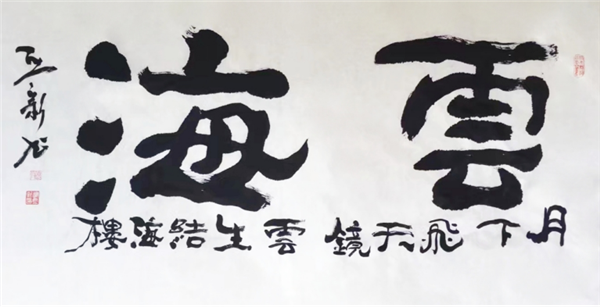 雲海
月下飛天鏡雲生結海樓